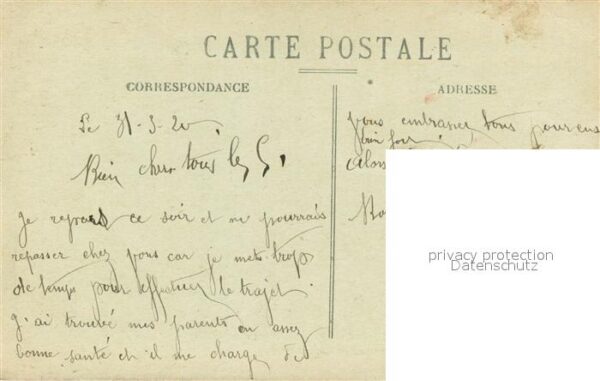 CARTE POSTALE
CORRESPONDANCE
Le 31-3-20
Bien chers tous les 5,
Je repars ce soir et ne pourrais
repasser chez vous car je mets trop
de temps pour effectuer le trajet
J'ai trouvé mes parents en assez
bonne santé et il me charge de
ADRESSE
vous embrasser tous pour eux
bien fort
Alors
privacy protection
Datenschutz